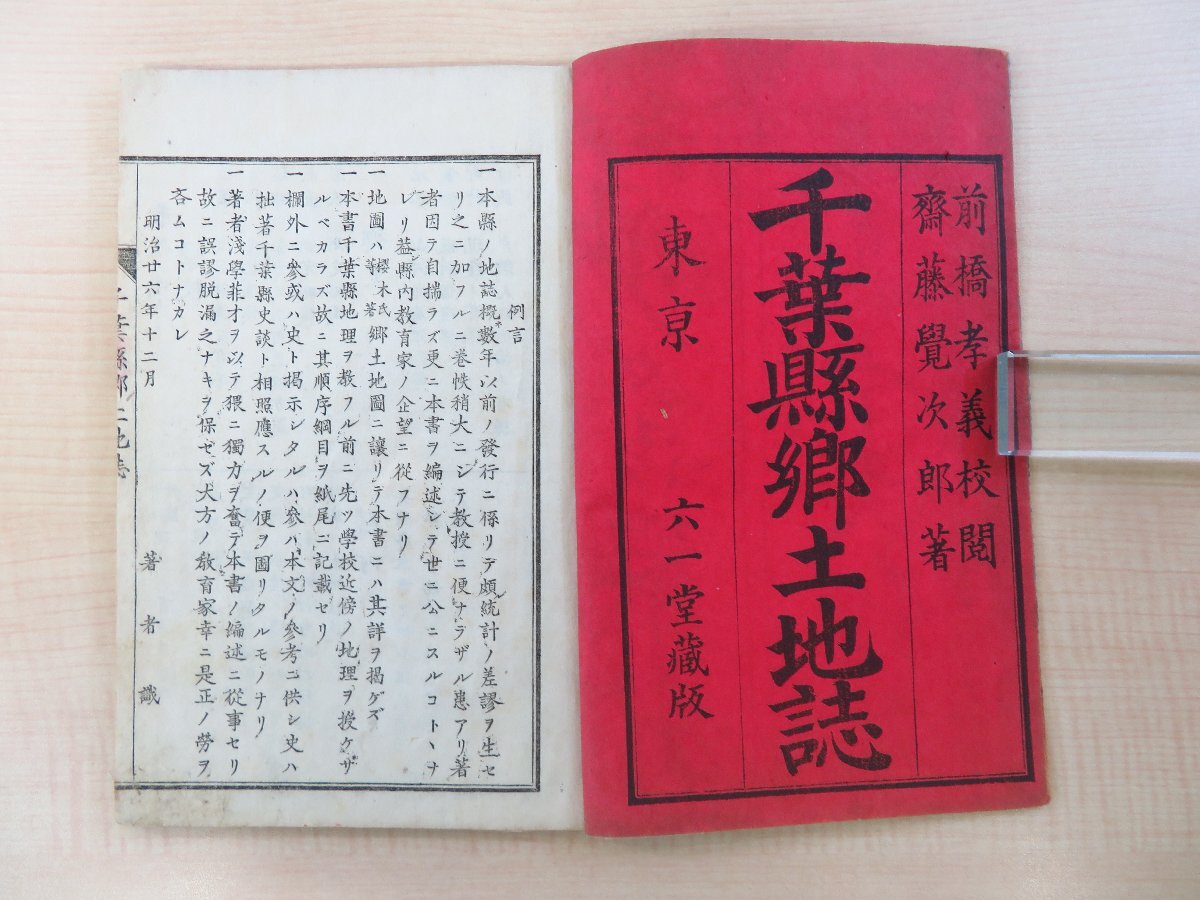 前橋孝義校閲
齋藤覺次郎著
千葉縣鄉土地誌
東京 六一堂藏版
例言
一本縣ノ地誌概數年以前ノ發行ニ係リテ頗統計ノ差謬ヲ生セ
リ之ニ加フルニ巻帙稍大ニシテ教授ニ便ナラザル患アリ著
者因ラ自揣ラズ更ニ本書ヲ編述シテ世ニ公ニスルコトヽナ
レリ蓋縣內教育家ノ企望ニ從フナリ
一地圖ハ櫻木氏等著鄉土地圖ニ讓リテ本書ニハ其詳ヲ揭ゲズ
一本書千葉縣地理ヲ教フル前ニ先ツ學校近傍ノ地理ヲ授ケザ
ルベカラズ故ニ其順序綱目ヲ紙尾ニ記載セリ
一欄外ニ參或ハ史ト揭示シタルハ參ハ本文ノ參考ニ供シ史ハ
拙著千葉縣史談ト相照應スルノ便ヲ圖リタルモノナリ
一著者淺學菲才ヲ以テ猥ニ獨力ヲ奮テ本書ノ編述ニ從事セリ
故ニ誤謬脫漏之ナキヲ保セズ大方ノ教育家幸ニ是正ノ勞ヲ
吝ムコトナカレ
明治廿六年十二月 著者識
千葉縣鄉土地誌